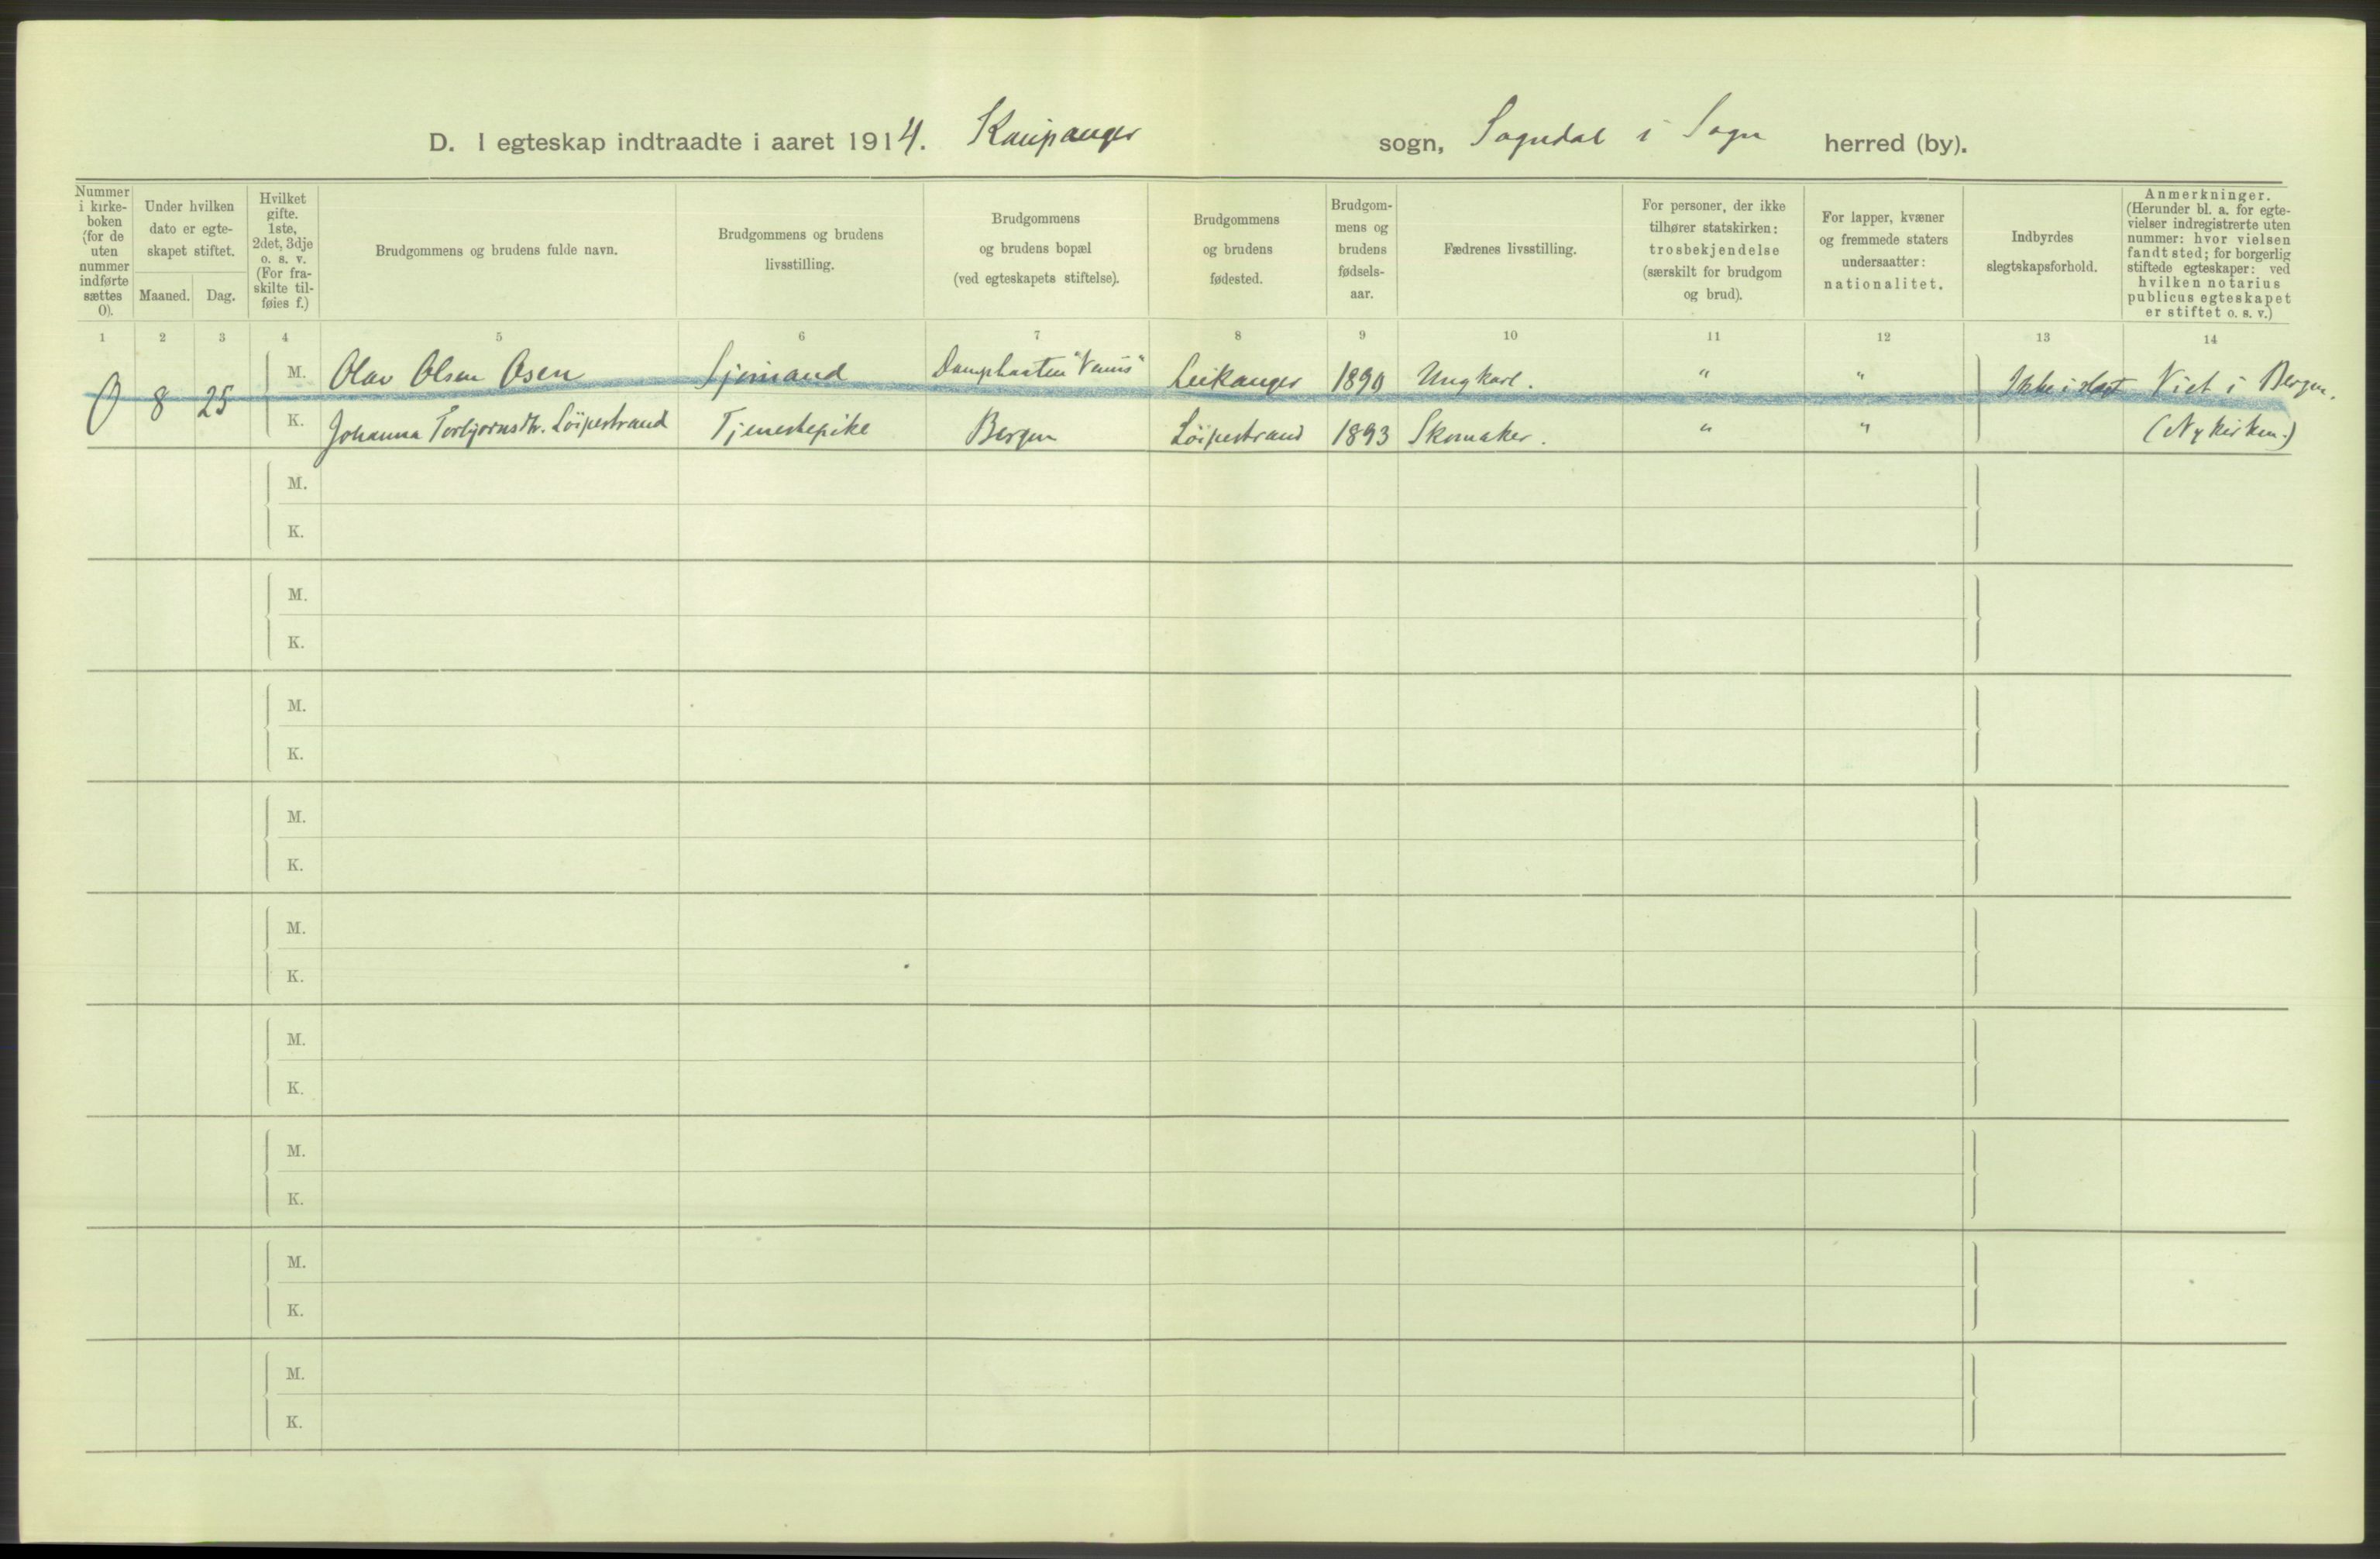 D. I egteskap indtraadte i aaret 1914. Kaupanger sogn, Sogndal i Sogn herred (by).
Nummer i kirke-boken (for de uten nummer indførte sættes 0).
Under hvilken dato er egte-skapet stiftet.
Maaned. Dag.
Hvilket gifte. 1ste, 2det, 3dje o. s. v. (For fra-skilte til-føies f.)
Brudgommens og brudens fulde navn.
Brudgommens og brudens livsstilling.
Brudgommens og brudens bopæl (ved egteskapets stiftelse).
Brudgommens og brudens fødested.
Brudgom-mens og brudens fødsels-aar.
Fædrenes livsstilling.
For personer, der ikke tilhører statskirken: trosbekjendelse (særskilt for brudgom og brud).
For lapper, kvæner og fremmede staters undersaatter: nationalitet.
Indbyrdes slegtskapsforhold.
Anmerkninger. (Herunder bl. a. for egte-vielser indregistrerte uten nummer: hvor vielsen fandt sted; for borgerlig stiftede egteskaper: ved hvilken notarius publicus egteskapet er stiftet o. s. v.)
1 2 3 4 5 6 7 8 9 10 11 12 13 14
0 8 25
M. Olav Olsen Osen Sjømand "Venus" Leikanger 1890 Ungkarl. " " Ikke i slegt Viet i Bergen.
K. Johanna Torbjørnsdtr. Løipestrand Tjenestepike Bergen Løipestrand 1893 Skomaker. " " (Nykirken.)
M.
K.
M.
K.
M.
K.
M.
K.
M.
K.
M.
K.
M.
K.
M.
K.
M.
K.